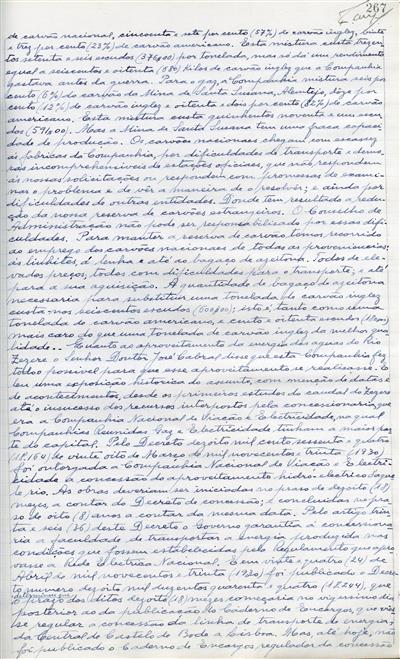 267
de carvão nacional, cincoenta e sete por cento (57%) de carvão inglez, vinte
e trez por cento (23%) de carvão americano. Esta mistura custa trezen-
tos setenta e seis escudos (376$00) por tonelada, mas só dá um rendimento
egual a seiscentos e oitenta (680) kilos de carvão inglez que a Companhia
gastava antes da guerra. Para o gaz, a Companhia mistura seis por
cento (6%) de carvão da Mina de Santa Suzana, Alemtejo, doze por
cento (12%) de carvão inglez e oitenta e dois por cento (82%) de carvão
americano. Esta mistura custa quinhentos noventa e um escu-
dos (591$00). Mas a Mina de Santa Suzana tem uma fraca capaci-
dade de producção. Os carvões nacionaes chegam com escassez
ás fabricas da Companhia, por difficuldades de transporte e demo-
ras incomprehensiveis de estações officiaes, que não respondem
ás nossas solicitações ou respondem com promessas de exami-
nar o problema e de vêr a maneira de o resolver; e ainda por
difficuldades de outras entidades. Donde tem resultado a redu-
ção da nossa reserva de carvões estrangeiros. O Conselho de
Administração não pode ser responsabilisado por essas diffi-
culdades. Para manter a reserva de carvão temos recorrido
ao emprego dos carvões nacionaes de todas as proveniencias,
ás linhites, á lenha e até ao bagaço de azeitona. Todos de ele-
vados preços, todos com difficuldades para o transporte, e até
para a sua aquisição. A quantidade de bagaço de azeitona
necessaria para substituir uma tonelada de carvão inglez
custa-nos seiscentos escudos (600$00); isto é, tanto como uma
tonelada de carvão americano, e cento e oitenta escudos
mais caro do que uma tonelada de carvão inglez da melhor qua-
lidade. - Emquanto ao aproveitamento da energia das aguas do Rio
Zezere o Senhor Doutor José Cabral disse que esta Companhia fez
todo o possivel para que esse aproveitamento se realisasse. E
leu uma exposição historica do assunto, com menção de datas e
de acontecimentos, desde os primeiros estudos do caudal do Zezere
até o insucesso dos recursos interpostos pela concessionaria, que
era a Companhia Nacional de Viação e Electricidade, na qual
as Companhias Reunidas Gaz e Electricidade tinham a maior par-
te do capital. Pelo Decreto dezoito mil cento sessenta e quatro
(18.164) de vinte oito de Março de mil novecentos e trinta (1930)
foi outorgada a Companhia Nacional de Viação e Electri-
cidade a concessão do aproveitamento hidro-electrico daque-
le rio. As obras deveriam ser iniciadas no prazo de dezoito (18)
mezes, a contar do Decreto de concessão; e concluidas no pra-
so de oito (8) anos a contar da mesma data. Pelo artigo trin-
ta e seis (36) deste Decreto o Governo garantia á concessiona-
ria a faculdade de transportar a energia produzida nas
condições que fossem estabelecidas pelo Regulamento que apro-
vasse a Rede Electrica Nacional. Em vinte e quatro (24) de
Abril de mil novecentos e trinta (1930) foi publicado o Decreto
numero dezoito mil duzentos quarenta e quatro (18.244), que
o prazo dos ditos dezoito (18) mezes começaria no vigesimo dia
posterior ao da publicação do Caderno de Encargos, que vies-
se regular a concessão da linha de transporte de energia,
da Central de Castelo do Bode a Lisboa. Mas, até hoje, não
foi publicado o Caderno de Encargos regulador da concessão